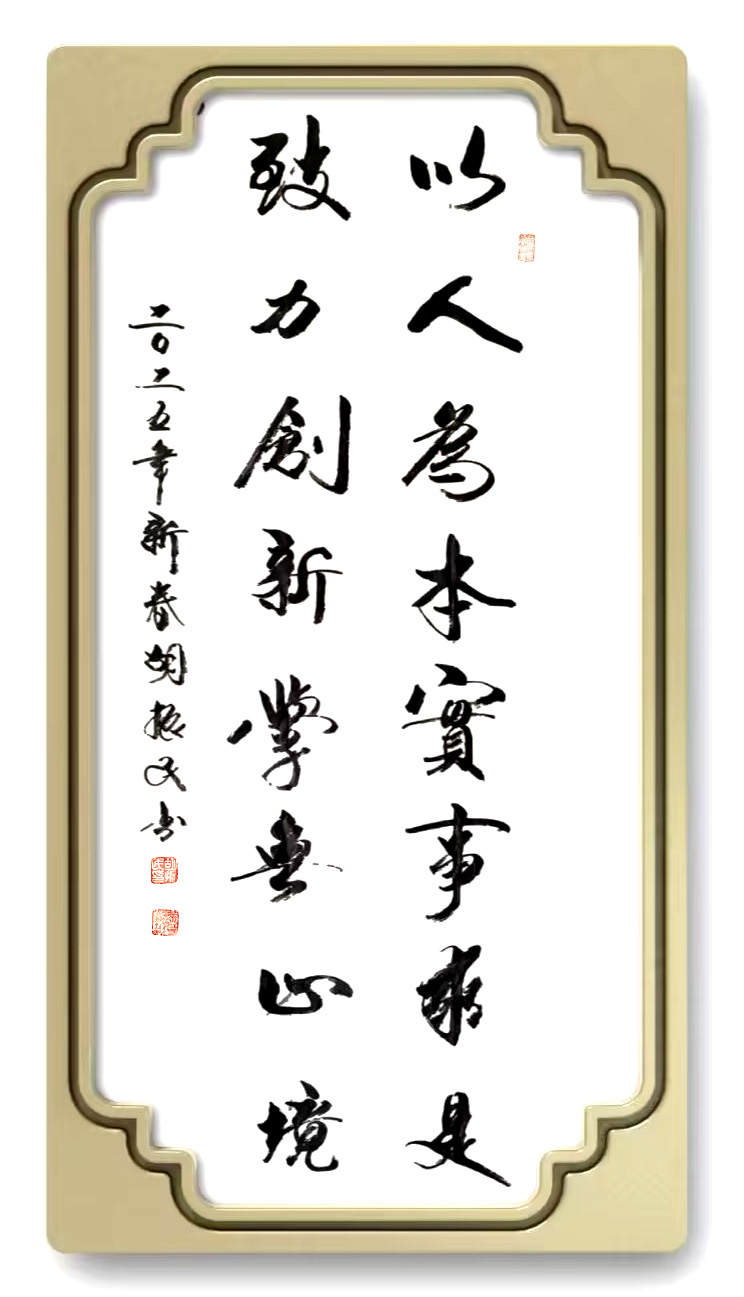 以人為本實事求是
致力創新學無止境
二〇二五年新春胡振民書